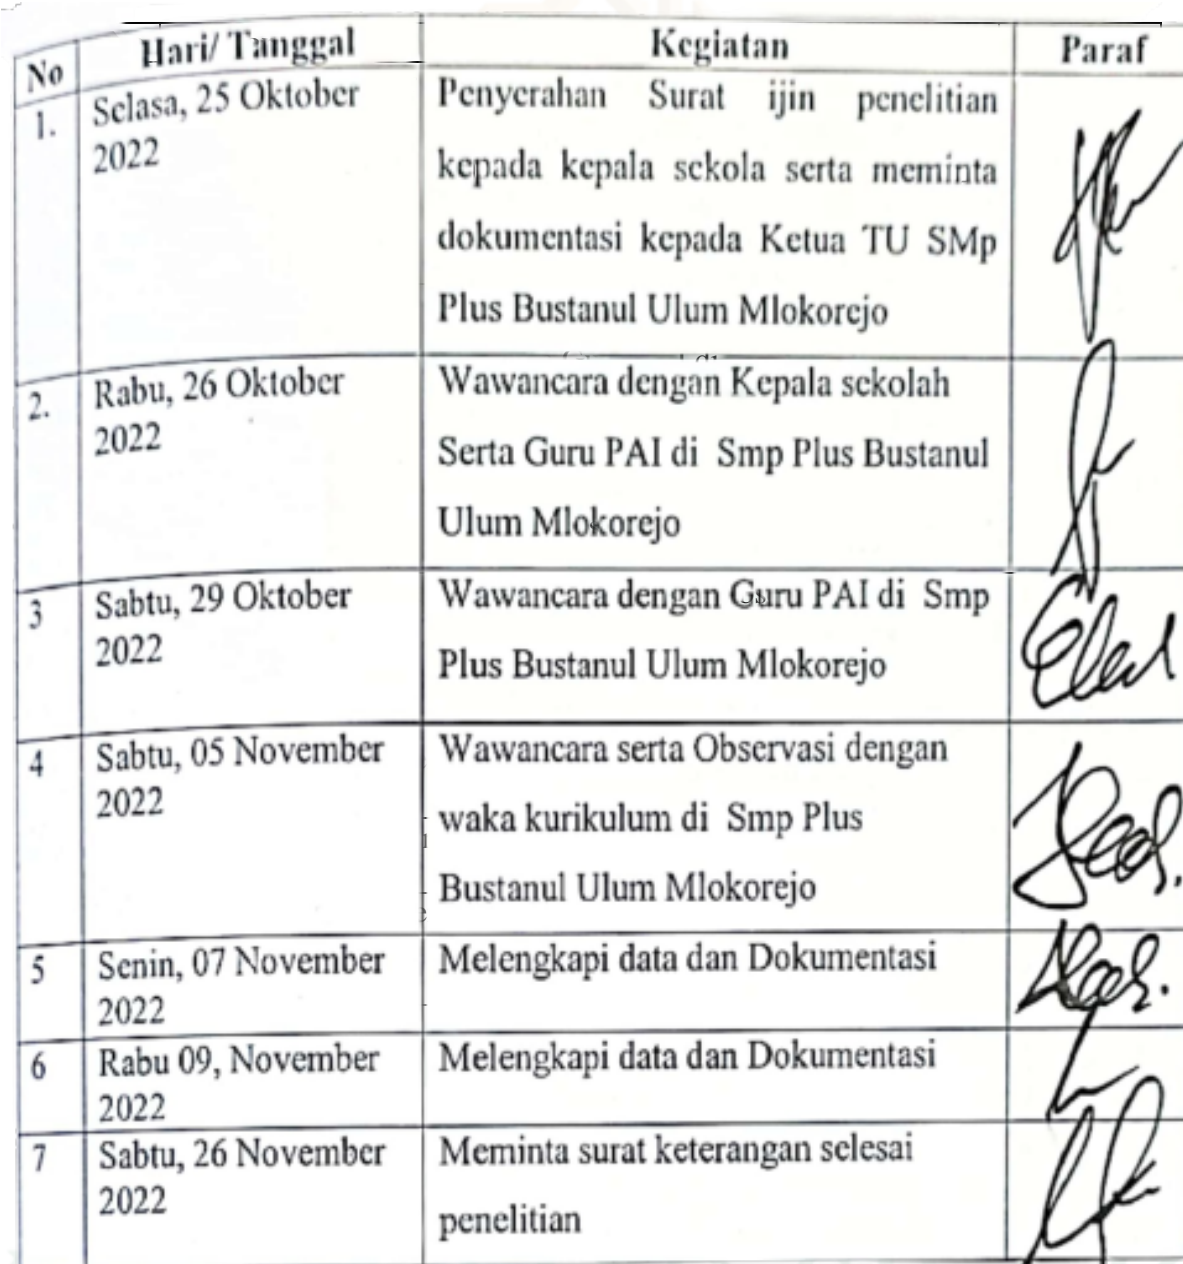 No Hari/ Tanggal Kegiatan Paraf
1. Selasa, 25 Oktober
2022
Penyerahan Surat ijin penelitian
kepada kepala sekola serta meminta
dokumentasi kepada Ketua TU SMp
Plus Bustanul Ulum Mlokorejo
2. Rabu, 26 Oktober
2022
Wawancara dengan Kepala sekolah
Serta Guru PAI di Smp Plus Bustanul
Ulum Mlokorejo
3 Sabtu, 29 Oktober
2022
Wawancara dengan Guru PAI di Smp
Plus Bustanul Ulum Mlokorejo
4 Sabtu, 05 November
2022
Wawancara serta Observasi dengan
waka kurikulum di Smp Plus
Bustanul Ulum Mlokorejo
5 Senin, 07 November
2022
Melengkapi data dan Dokumentasi
6 Rabu 09, November
2022
Melengkapi data dan Dokumentasi
7 Sabtu, 26 November
2022
Meminta surat keterangan selesai
penelitian